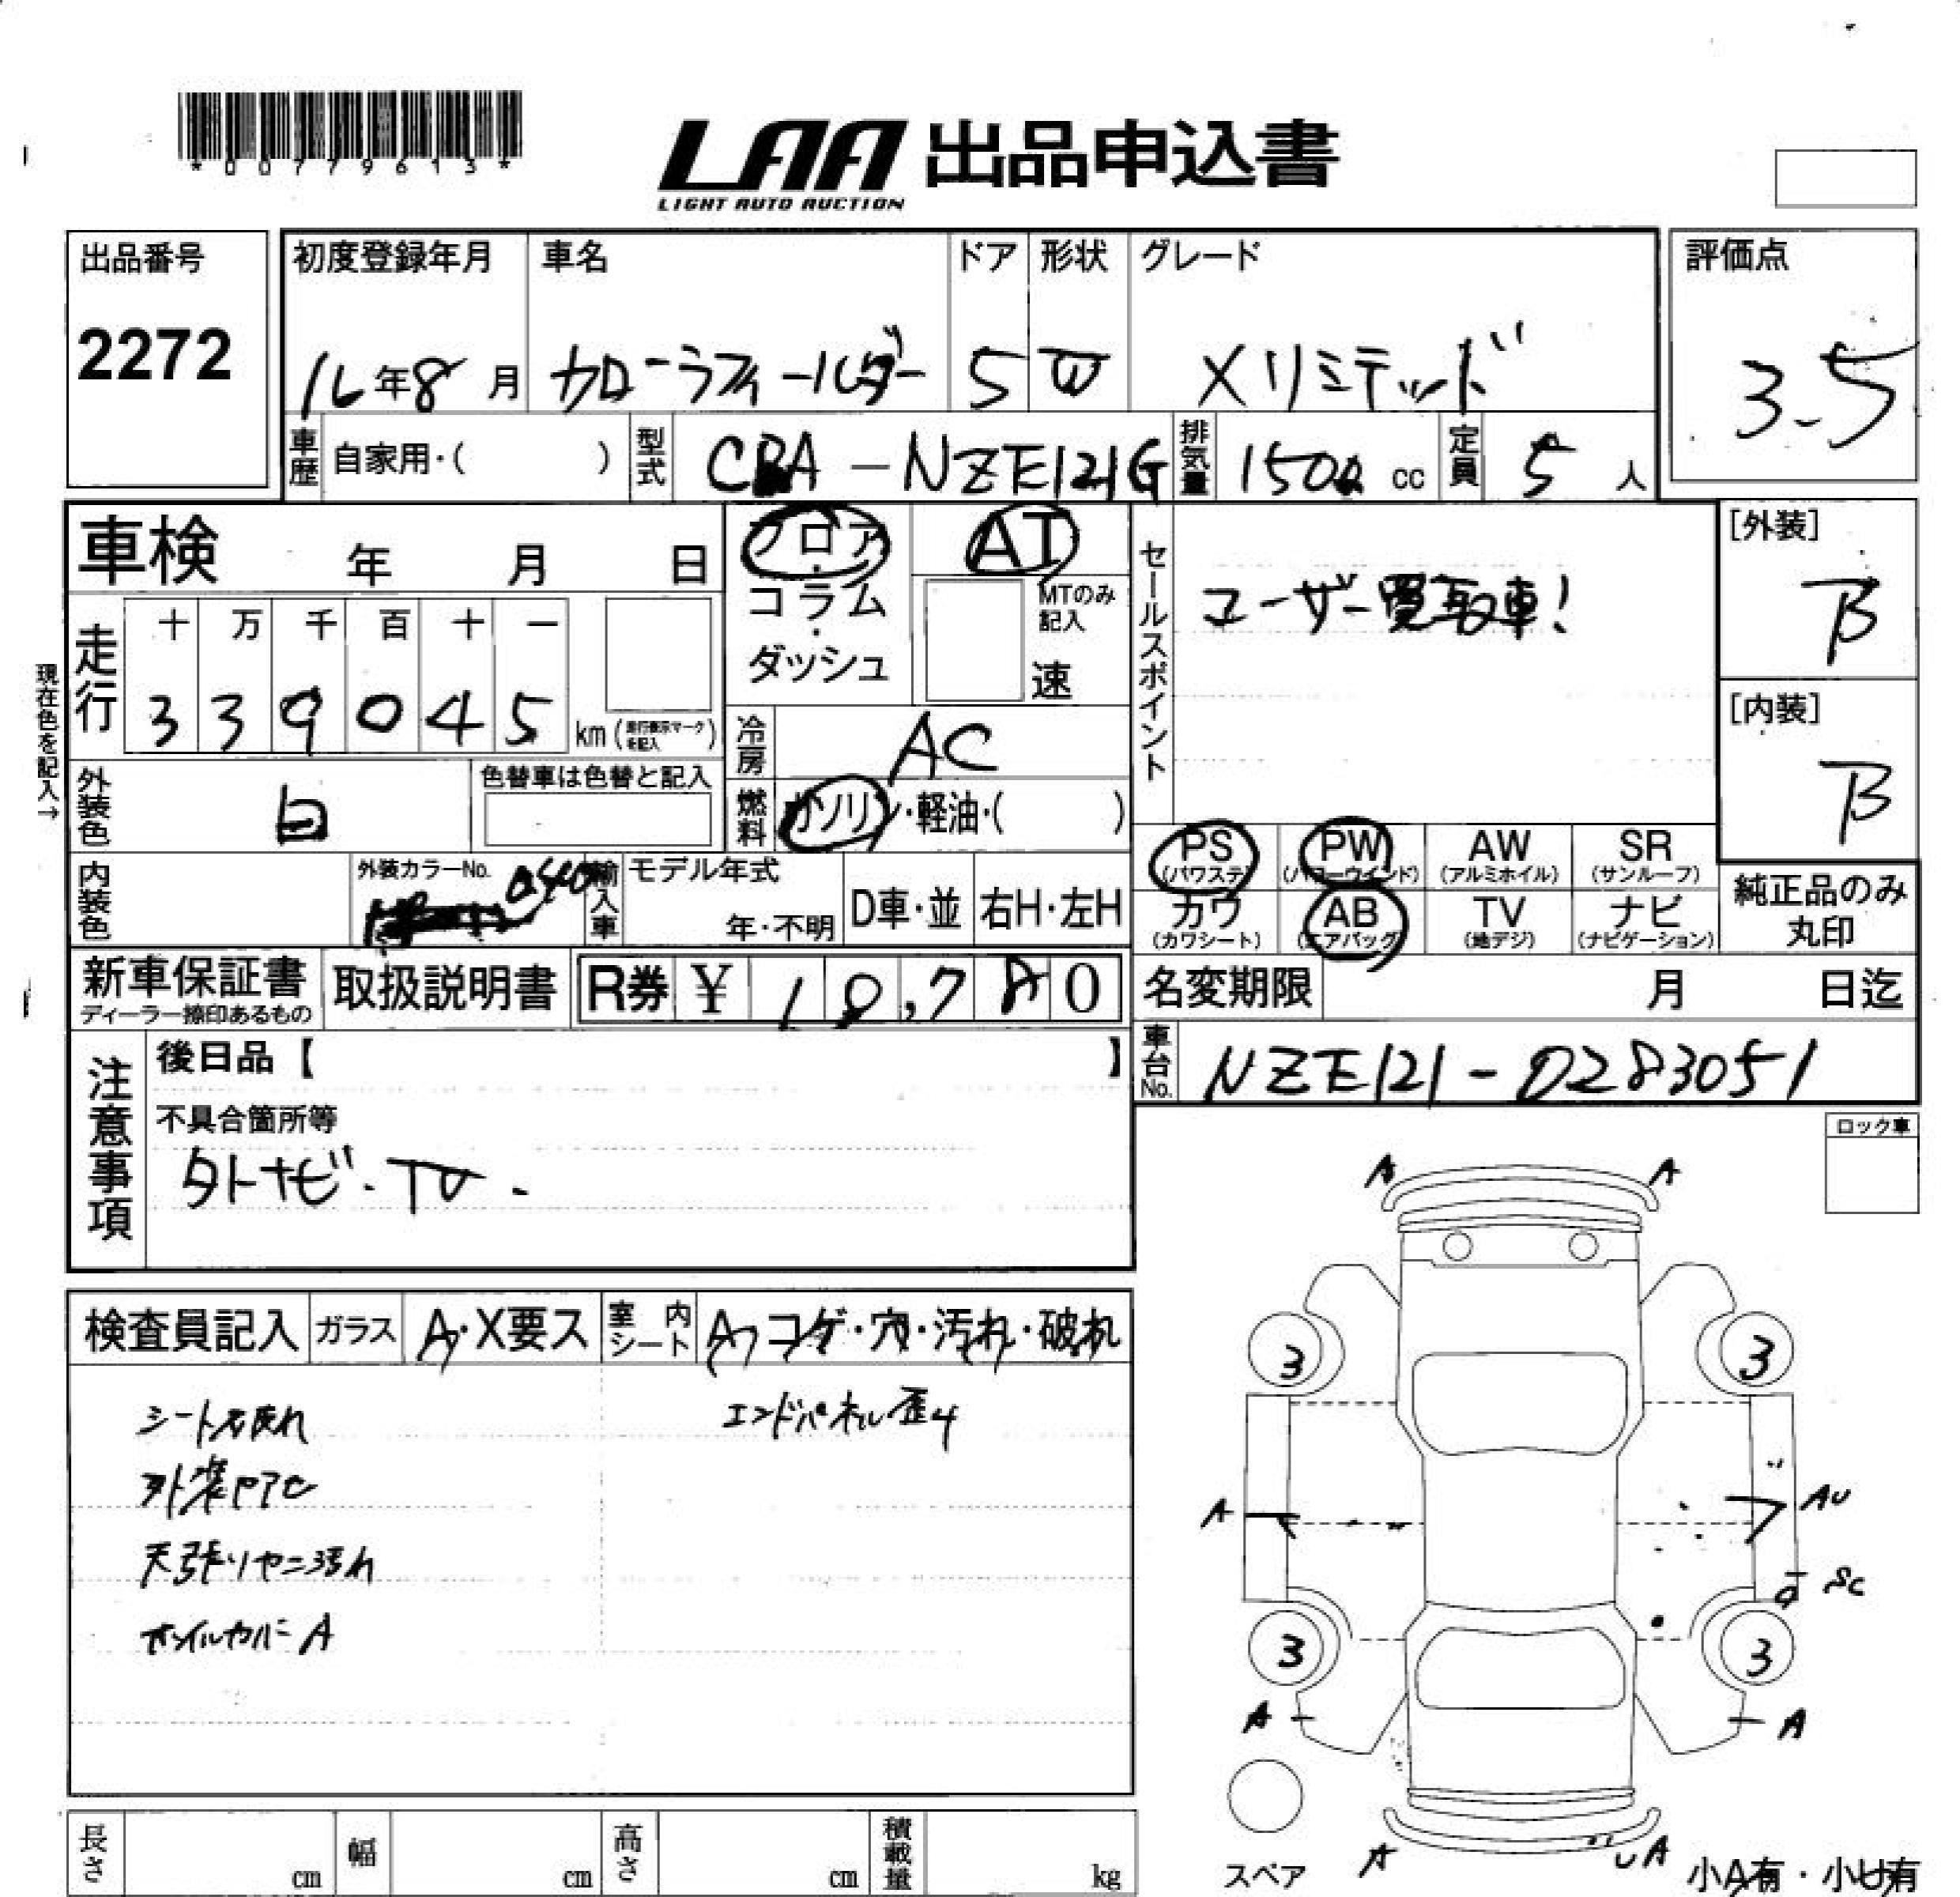 *00779613*
LAA 出品申込書
LIGHT AUTO AUCTION
出品番号
2272
初度登録年月 車名 ドア 形状 グレード
16年8月 カローラフィールダー 5 W Xリミテッド
評価点
3.5
車歴 自家用・( ) 型式 CBA-NZE121G 排気量 1500 cc 定員 5 人
車検 年 月 日
フロア・コラム・ダッシュ
AT
MTのみ記入
速
セールスポイント
ユーザー買取車!
[外装]
B
[内装]
B
現在色を記入→
走行 十 万 千 百 十 一
3 3 9 0 4 5 km (走行表示マークを記入)
冷房 AC
外装色 白 色替車は色替と記入
燃料 ガソリン・軽油・( )
PS (パワステ) PW (パワーウインド) AW (アルミホイル) SR (サンルーフ)
カワ (カワシート) AB (エアバッグ) TV (地デジ) ナビ (ナビゲーション)
純正品のみ丸印
内装色 外装カラーNo. 040 輸入車 モデル年式 年・不明 D車・並 右H・左H
新車保証書 ディーラー捺印あるもの 取扱説明書 R券 ¥ 10,780
名変期限 月 日迄
車台No. NZE121-0283051
注意事項
後日品【 】
不具合箇所等
外ナビ・TV.
ロック車
検査員記入 ガラス A・X要ス 室内シート A・コゲ・穴・汚れ・破れ
シート汚れ エンドパネル歪み
外装
天張りヤニ汚れ
ホイルカバーA
A A
3 3
A AU
SC
3 3
A A
スペア
A UA
小A有・小U有
長さ cm 幅 cm 高さ cm 積載量 kg